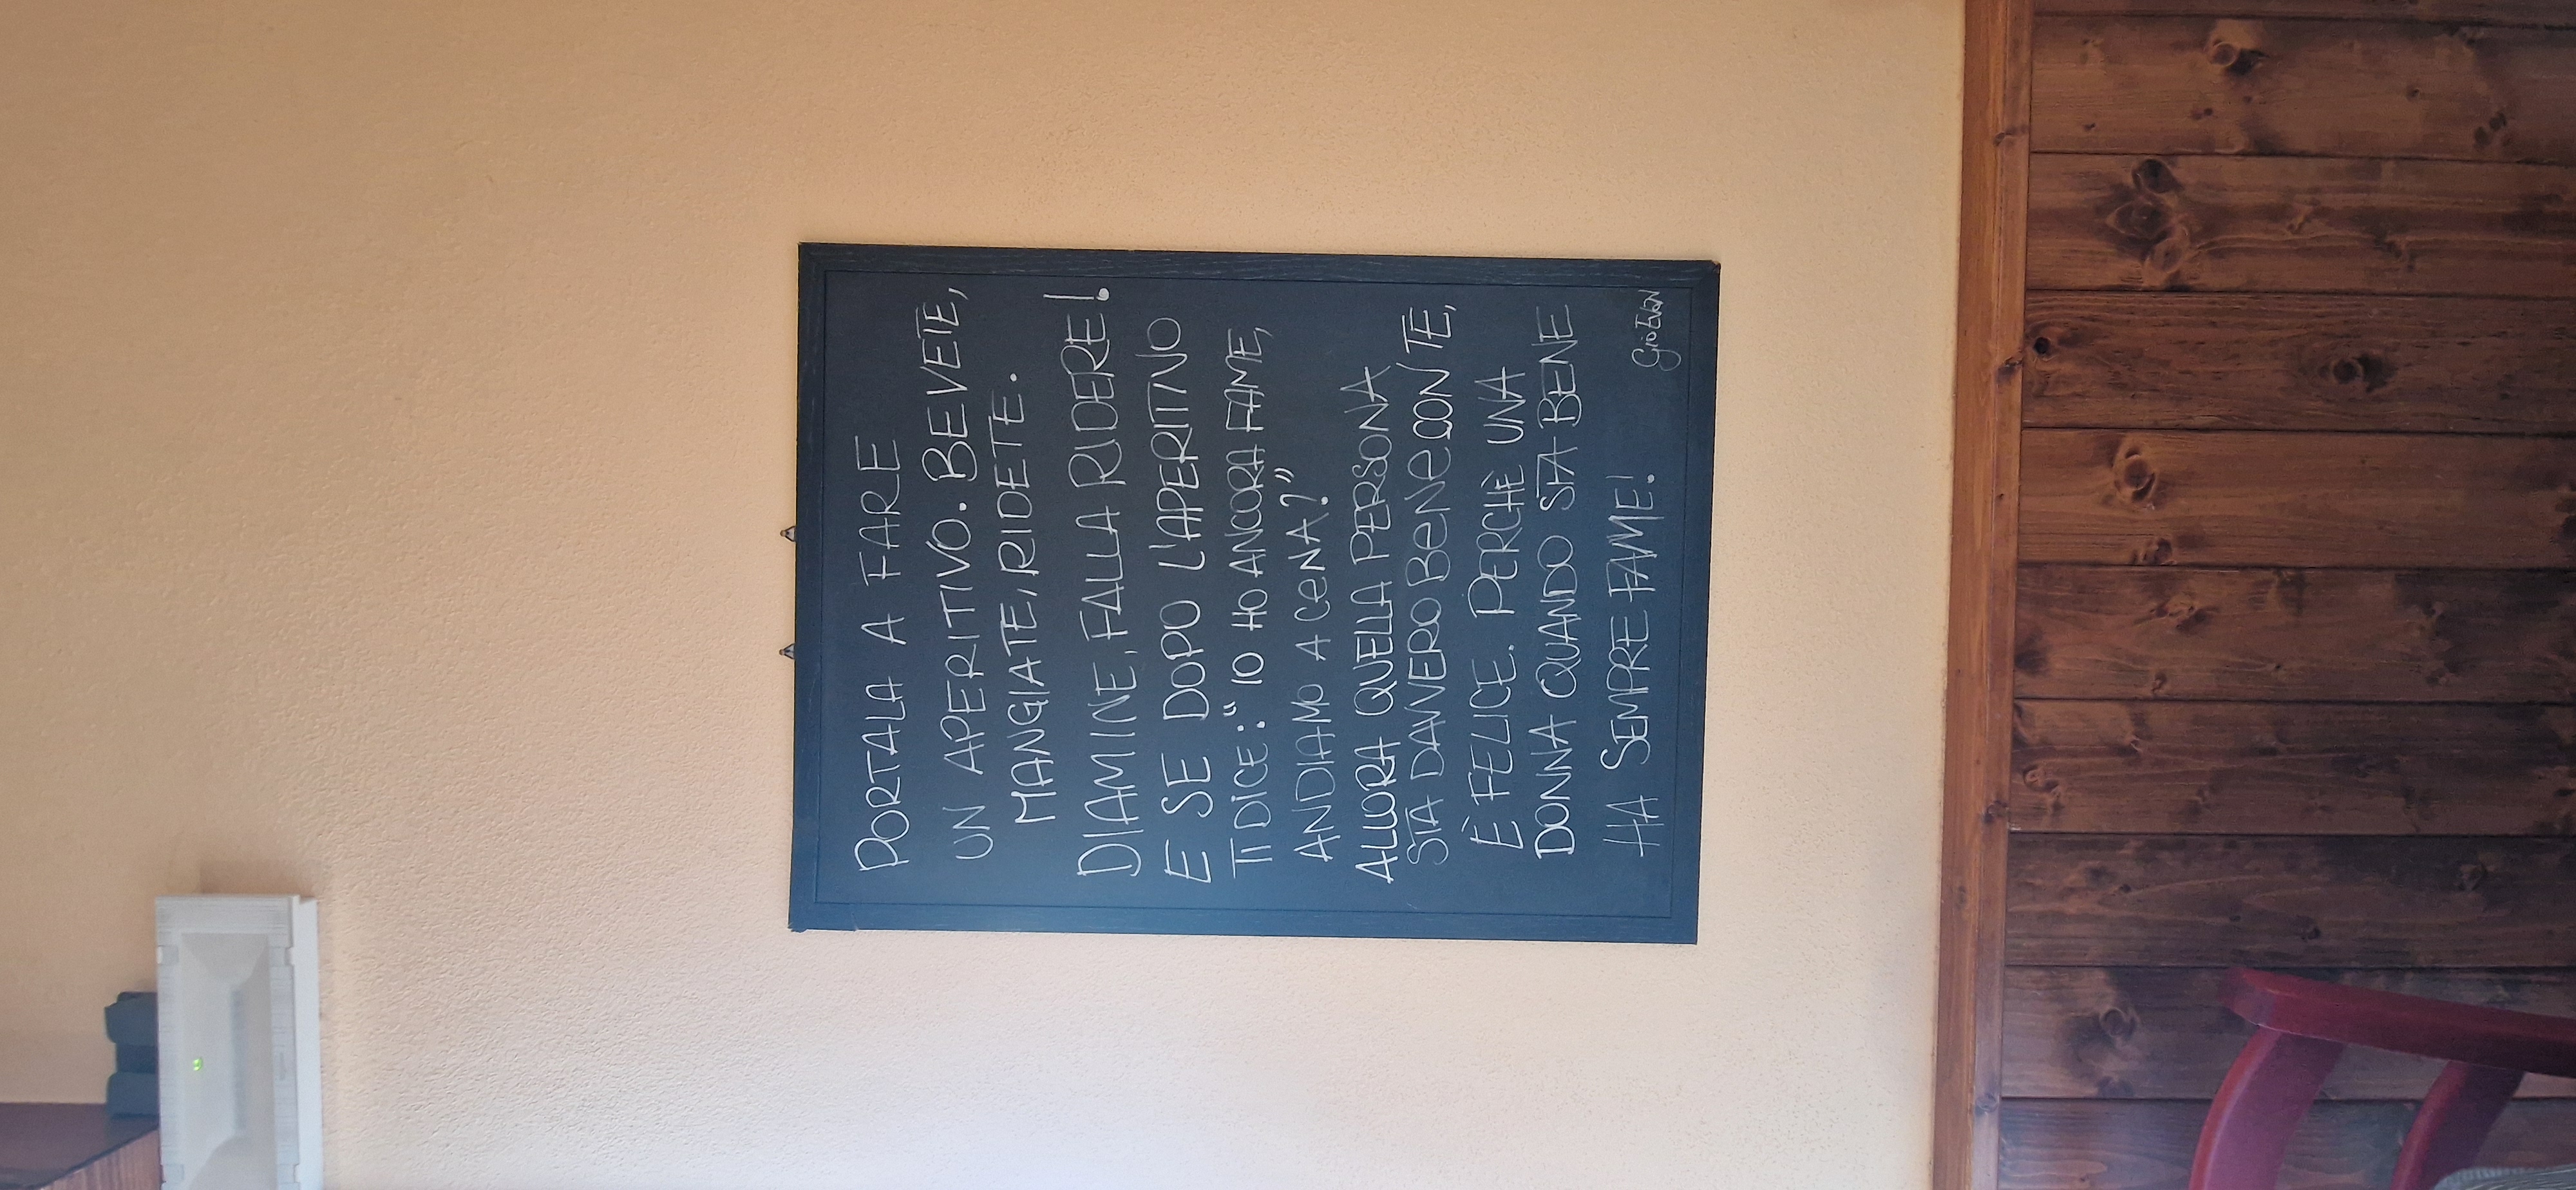 PORTALA A FARE
UN APERITIVO. BEVETE,
MANGIATE, RIDETE.
DIAMINE, FALLA RIDERE!
E SE DOPO L'APERITIVO
TI DICE: "IO HO ANCORA FAME,
ANDIAMO A CeNA?"
ALLORA QUELLA PERSONA
STA DAVVERO BeNe CON TE,
È FELICE. PERCHÈ UNA
DONNA QUANDO STA BENE
HA SEMPRE FAME!
Giò Evan